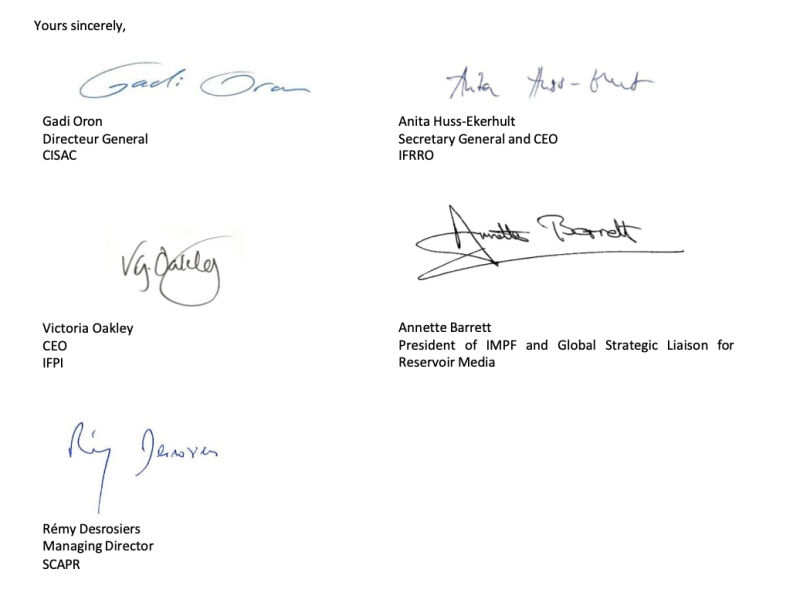 Yours sincerely,
Gadi Oron
Gadi Oron
Directeur General
CISAC
Anita Huss-Ekerhult
Anita Huss-Ekerhult
Secretary General and CEO
IFRRO
V.G. Oakley
Victoria Oakley
CEO
IFPI
Annette Barrett
Annette Barrett
President of IMPF and Global Strategic Liaison for
Reservoir Media
Rémy Desrosiers
Rémy Desrosiers
Managing Director
SCAPR